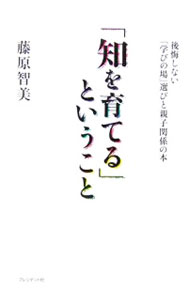 後悔しない
「学びの場」選びと親子関係の本
「知を育てる」
ということ
藤原智美
プレジデント社